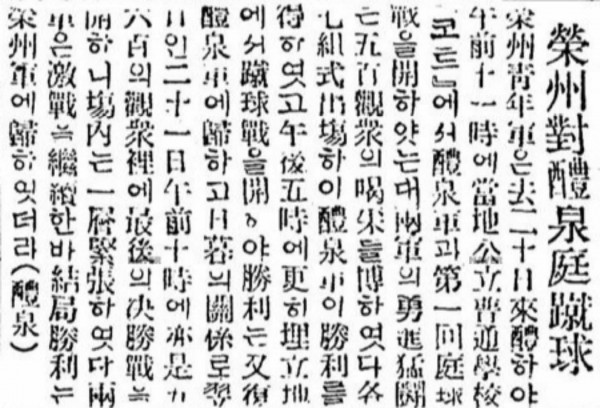 榮州對醴泉庭蹴球
榮州靑年軍은去二十日來醴하야
午前十一時에當地公立普通學校
「코트」에서醴泉軍과第一回庭球
戰을開하얏는대兩軍의勇進猛鬪
는五百觀衆의喝采를博하엿다各
七組式出塲하야醴泉軍이勝利를
得하엿고午後五時에更히埋立地
에서蹴球戰을開하야勝利는又復
醴泉軍에歸하고日暮의關係로翌
日인二十一日午前十時에亦是五
六百의觀衆裡에最後의決勝戰을
開하니塲內는一層緊張하엿다兩
軍은激戰을繼續한바結局勝利는
榮州軍에歸하엿더라(醴泉)